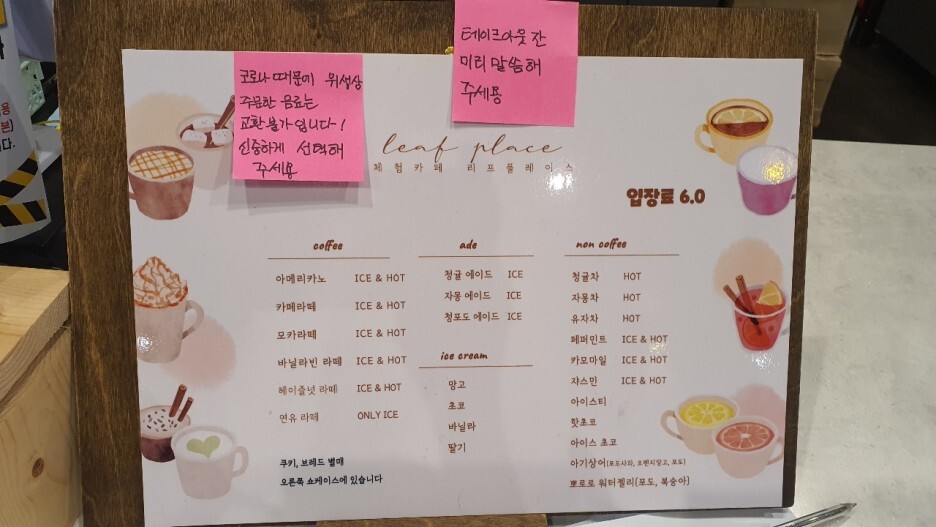 테이크아웃 잔
미리 말씀해
주세용
코로나 때문에 위생상
주문한 음료는
교환 불가입니다!
신중하게 선택해
주세용
leaf place
체험카페 리프플레이스
입장료 6.0
coffee
아메리카노 ICE & HOT
카페라떼 ICE & HOT
모카라떼 ICE & HOT
바닐라빈 라떼 ICE & HOT
헤이즐넛 라떼 ICE & HOT
연유 라떼 ONLY ICE
쿠키, 브레드 별매
오른쪽 쇼케이스에 있습니다
ade
청귤 에이드 ICE
자몽 에이드 ICE
청포도 에이드 ICE
ice cream
망고
초코
바닐라
딸기
non coffee
청귤차 HOT
자몽차 HOT
유자차 HOT
페퍼민트 ICE & HOT
카모마일 ICE & HOT
쟈스민 ICE & HOT
아이스티
핫초코
아이스 초코
아기상어(포도사과, 오렌지망고, 포도)
뽀로로 워터젤리(포도, 복숭아)